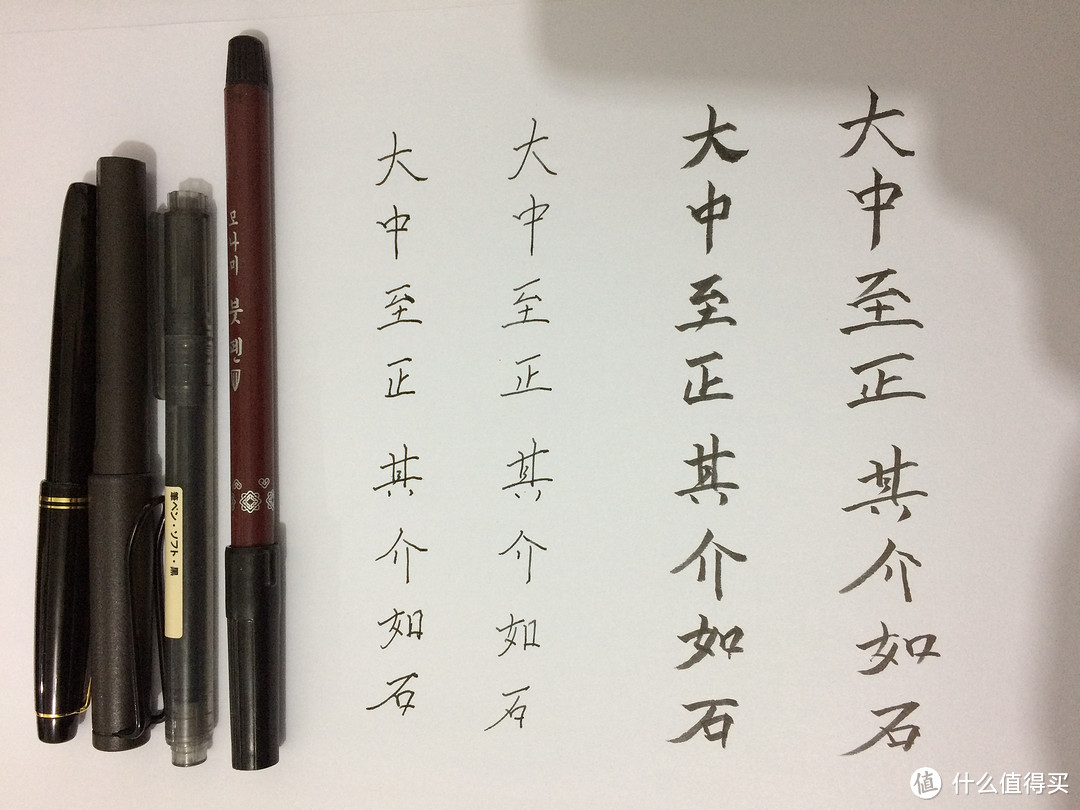 모나미 붓펜
筆ペン・ソフト・黒
大中至正 其介如石
大中至正 其介如石
大中至正 其介如石
大中至正 其介如石
值 什么值得买